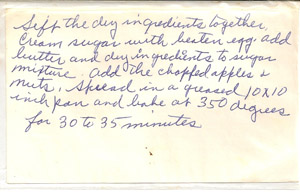 Sift the dry ingredients together,
Cream sugar with beaten egg. add
butter and dry ingredients to sugar
mixture. add the chopped apples &
nuts. Spread in a greased 10x10
inch pan and bake at 350 degrees
for 30 to 35 minutes